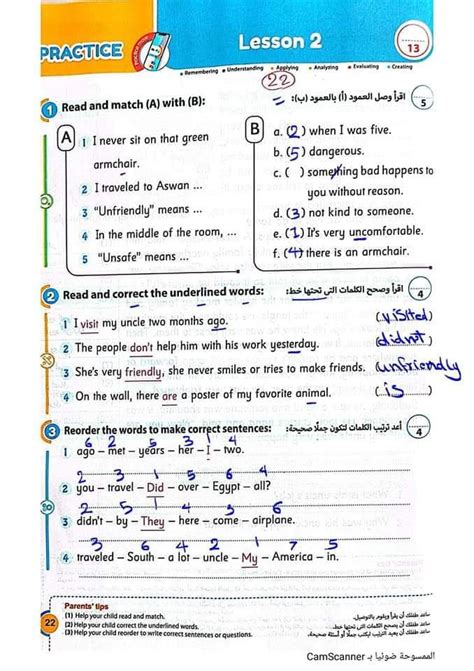 PRACTICE
Lesson 2
13
Remembering • Understanding • Applying • Analyzing • Evaluating • Creating
22
1 Read and match (A) with (B):
اقرأ وصل العمود (أ) بالعمود (ب):
5
A
1 I never sit on that green
armchair.
2 I traveled to Aswan ...
3 "Unfriendly" means ...
4 In the middle of the room, ...
5 "Unsafe" means ...
B
a. (2) when I was five.
b. (5) dangerous.
c. ( ) something bad happens to
you without reason.
d. (3) not kind to someone.
e. (1) It's very uncomfortable.
f. (4) there is an armchair.
2 Read and correct the underlined words:
اقرأ وصحح الكلمات التى تحتها خط:
4
1 I visit my uncle two months ago. (visited)
2 The people don't help him with his work yesterday. (didnot)
3 She's very friendly, she never smiles or tries to make friends. (unfriendly)
4 On the wall, there are a poster of my favorite animal. (is)
3 Reorder the words to make correct sentences:
أعد ترتيب الكلمات لتكون جملًا صحيحة:
4
6 2 5 3 1 4
1 ago – met – years – her – I – two.
2 3 1 5 6 4
2 you – travel – Did – over – Egypt – all?
2 5 1 3 4 6
3 didn't – by – They – here – come – airplane.
3 6 4 2 1 7 5
4 traveled – South – a lot – uncle – My – America – in.
22
Parents' tips
(1) Help your child read and match.
(2) Help your child correct the underlined words.
(3) Help your child reorder to write correct sentences or questions.
ساعد طفلك أن يقرأ ويقوم بالتوصيل.
ساعد طفلك أن يصحح الكلمات التى تحتها خط.
ساعد طفلك أن يعيد الترتيب ليكتب جملًا أو أسئلة صحيحة.
الممسوحة ضوئيا بـ CamScanner